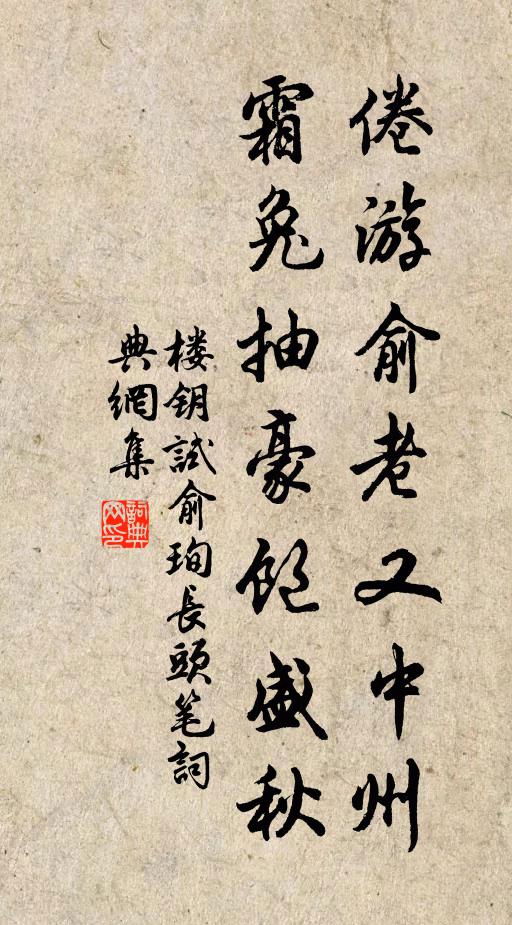 倦游俞老又中州
霜兔抽豪饱盛秋
楼钥試俞珣長頭笔詞
典網集
詞典網印